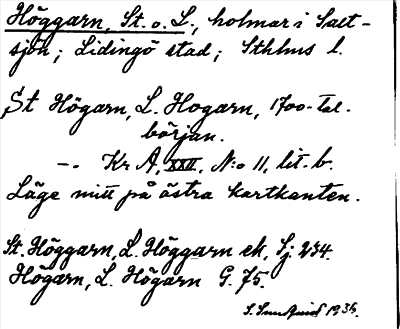 Höggarn, St. o. L., holmar i Salt-
sjön; Lidingö stad; Sthlms l.
St Högarn, L. Hogarn, 1700-tal.
början.
-.- Kr A, XXII, N:o 11, lit. b.
Läge mitt på östra kartkanten.
St. Höggarn, L. Höggarn ek, Sj. 234.
Högarn, L. Högarn G. 75.
S. 1936.